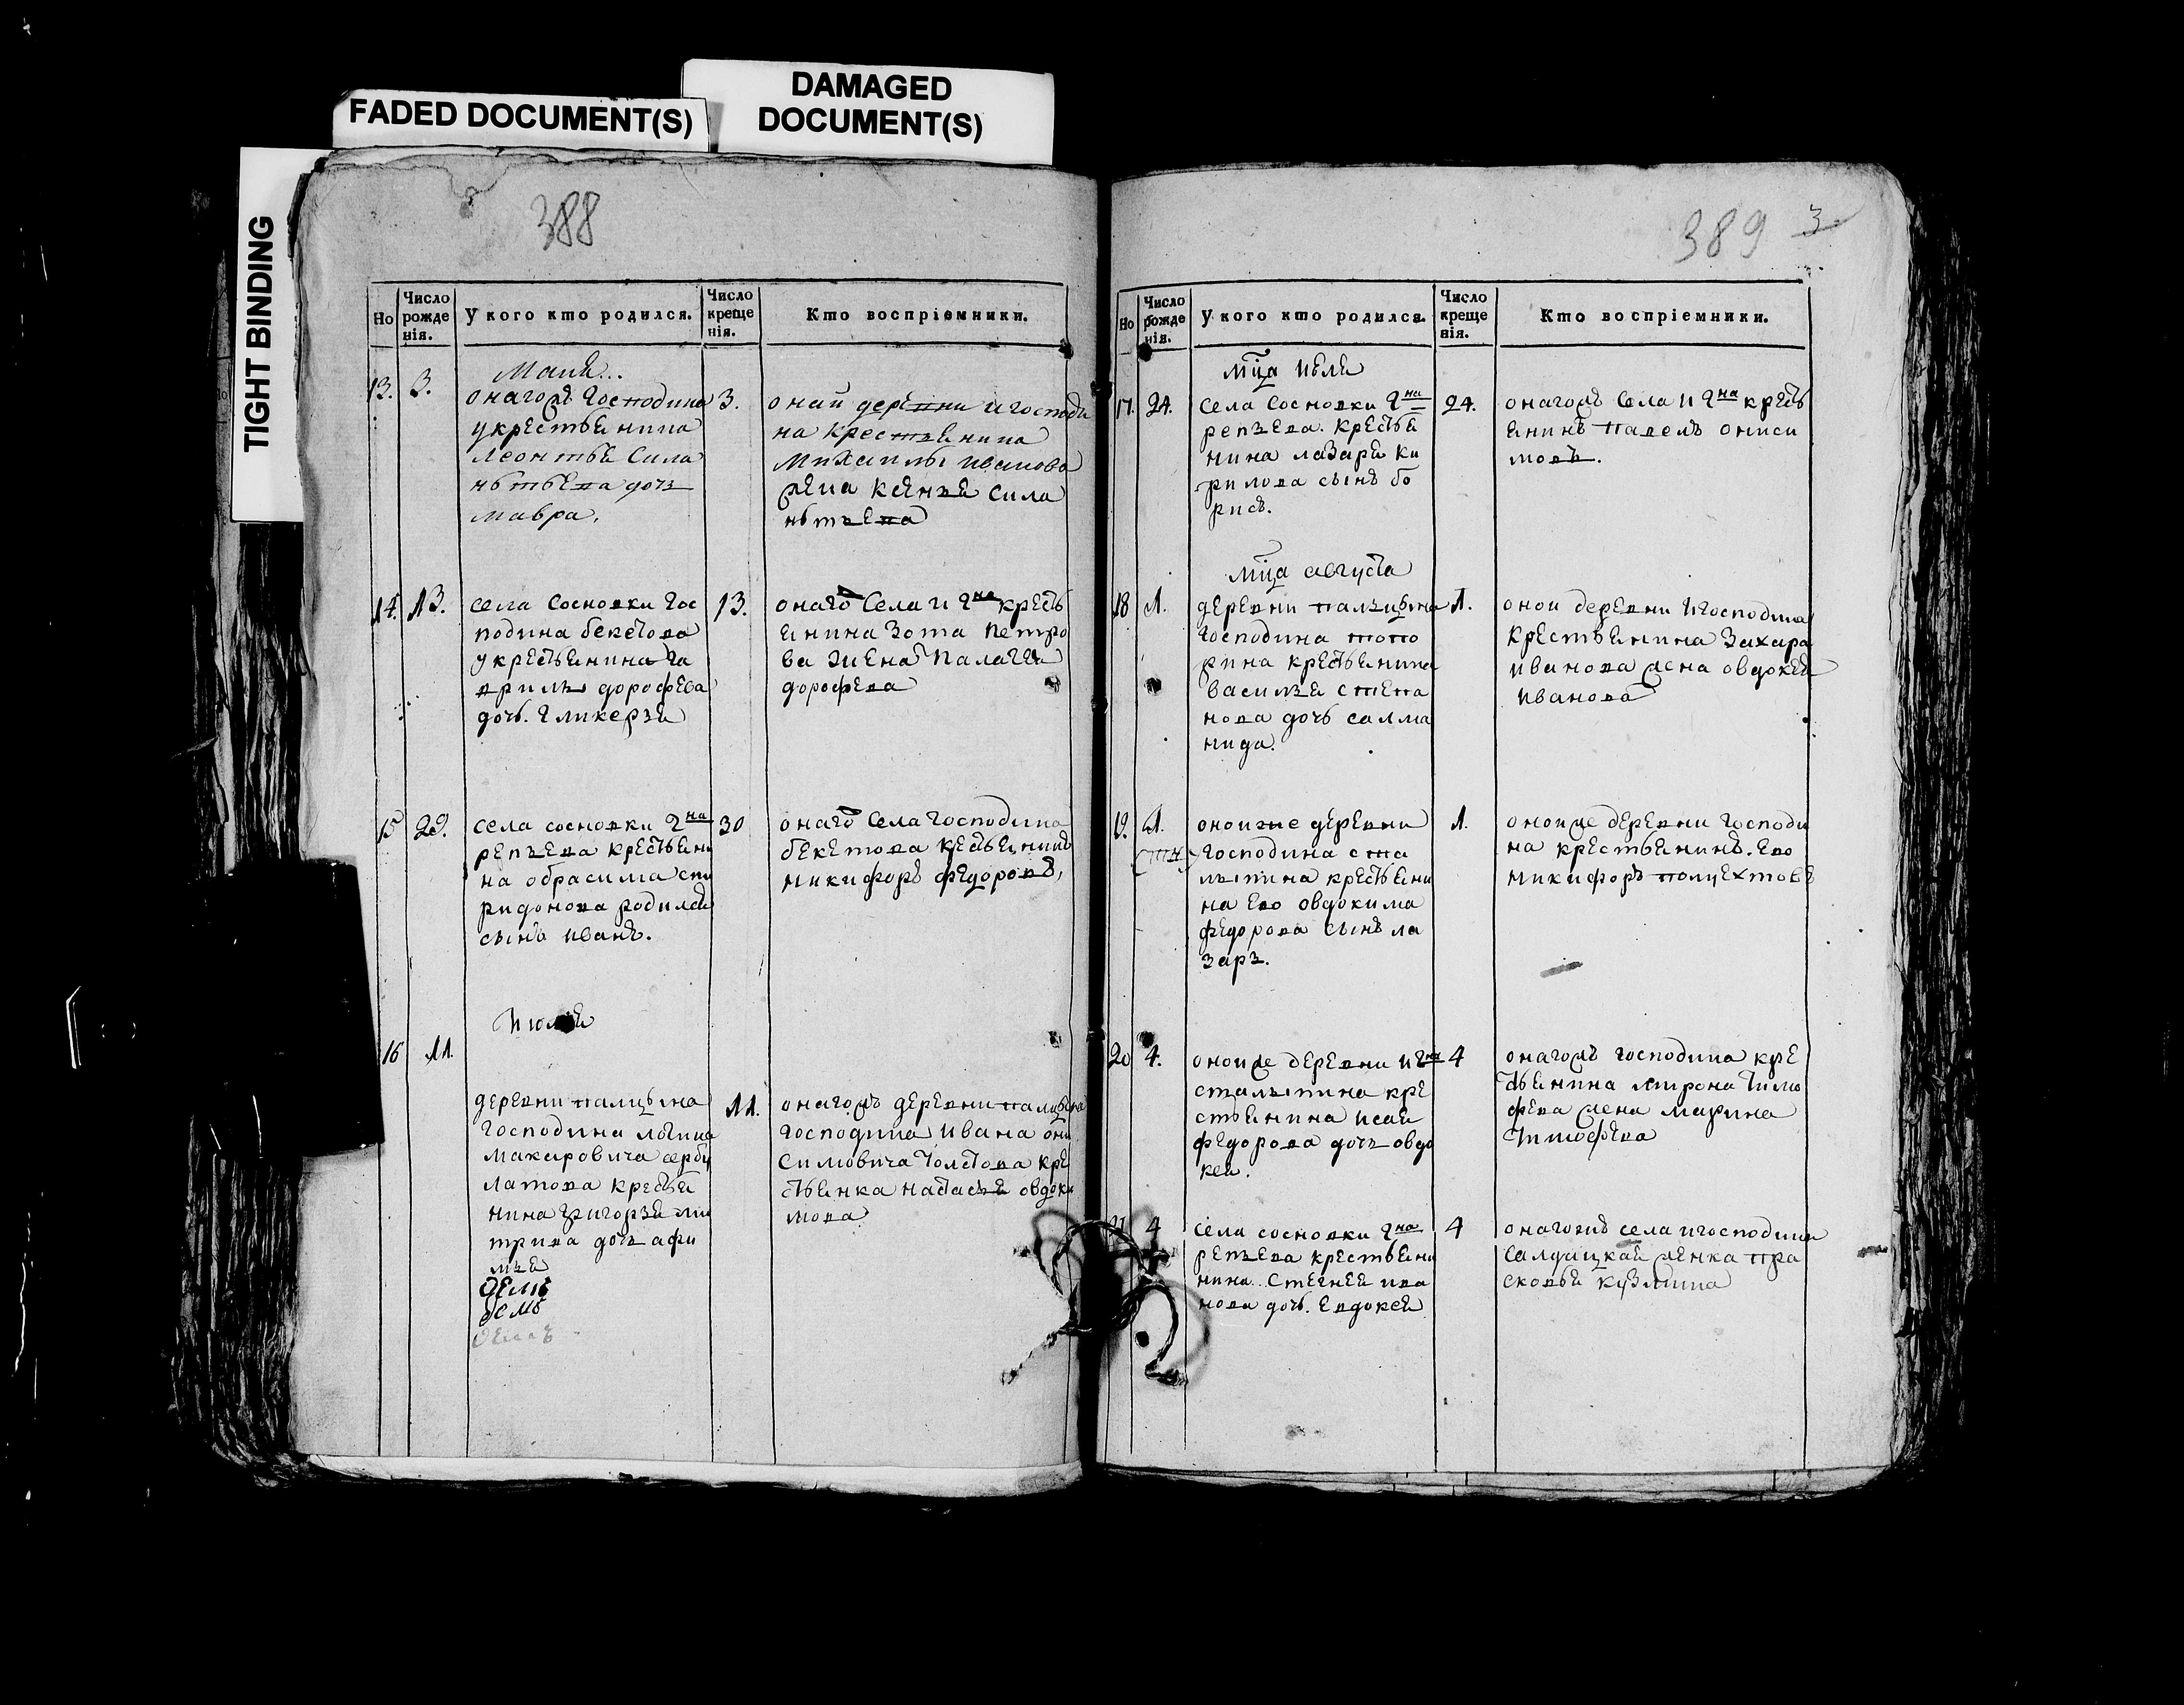 DAMAGED
DOCUMENT(S)
FADED DOCUMENT(S)
TIGHT BINDING
388
Но
Число рожде нія.
У кого кто родился.
Число креще нія.
Кто воспріемники.
Маия...
13. 3.
онагожъ Господина
укрестьенина
леонтье Сила
нътьева дочъ
мавра.
3.
онаи деревни игосподи
на крестьенина
Михаилы иванова
жена ксенъе Сила
нътъева
14. 13.
села Сосновки Гос
подина бекетова
укрестьенина га
врилы дорофева
дочь. гликеръе
13.
онаго Села и гна кресть
енина Зота петро
ва жена палагея
дорофева
15 29.
села сосновки гна
репъева крестьени
на обрасима спи
ридонова родилси
сынъ иванъ.
30
онаго Села господина
бекетова крестьенинъ
никифоръ федоровъ,
Июля
16 11.
деревни палицына
господина
макаровича
латова крестье
нина григоръе ми
трива дочъ афи
мъе
делъ
делъ
11.
онагожъ деревни палицына
господина ивана они
симовича толстова кре
стьенка настасъе овдоки
мова
389 3
Но
Число рожде нія.
У кого кто родился.
Число креще нія.
Кто воспріемники.
мца июле
17. 24.
села Сосновки гна
репъева. крестье
нина лазаре ки
рилова сынъ бо
рисъ.
24.
онагожъ села и гна кресть
енинъ павелъ ониси
мовъ.
мца августа
18 1.
деревни палицына
господина
рина крестьенина
василъе степа
нова дочь салма
нида.
1.
онои деревни игосподина
крестьенина Захара
иванова жена овдокея
иванова
19. 1.
оноиже деревни
господина ста
лыпина крестьени
на ево овдокима
федорова сынъ ла
заръ.
1.
оноиже деревни господи
на крестьенинъ. ево
никифоръ
20 4.
оноиже деревни и гна
сталыпина кре
стьенина исаи
федорова дочъ овдо
кеи.
4
онагожъ господина кре
стьенина мирона тимо
фева жена марина
тимофева
21 4
села сосновки гна
репъева крестьени
нина. Стегнее ива
нова дочь. евдокеи
4
онагожъ села игосподина
женка пра
сковье кузмина